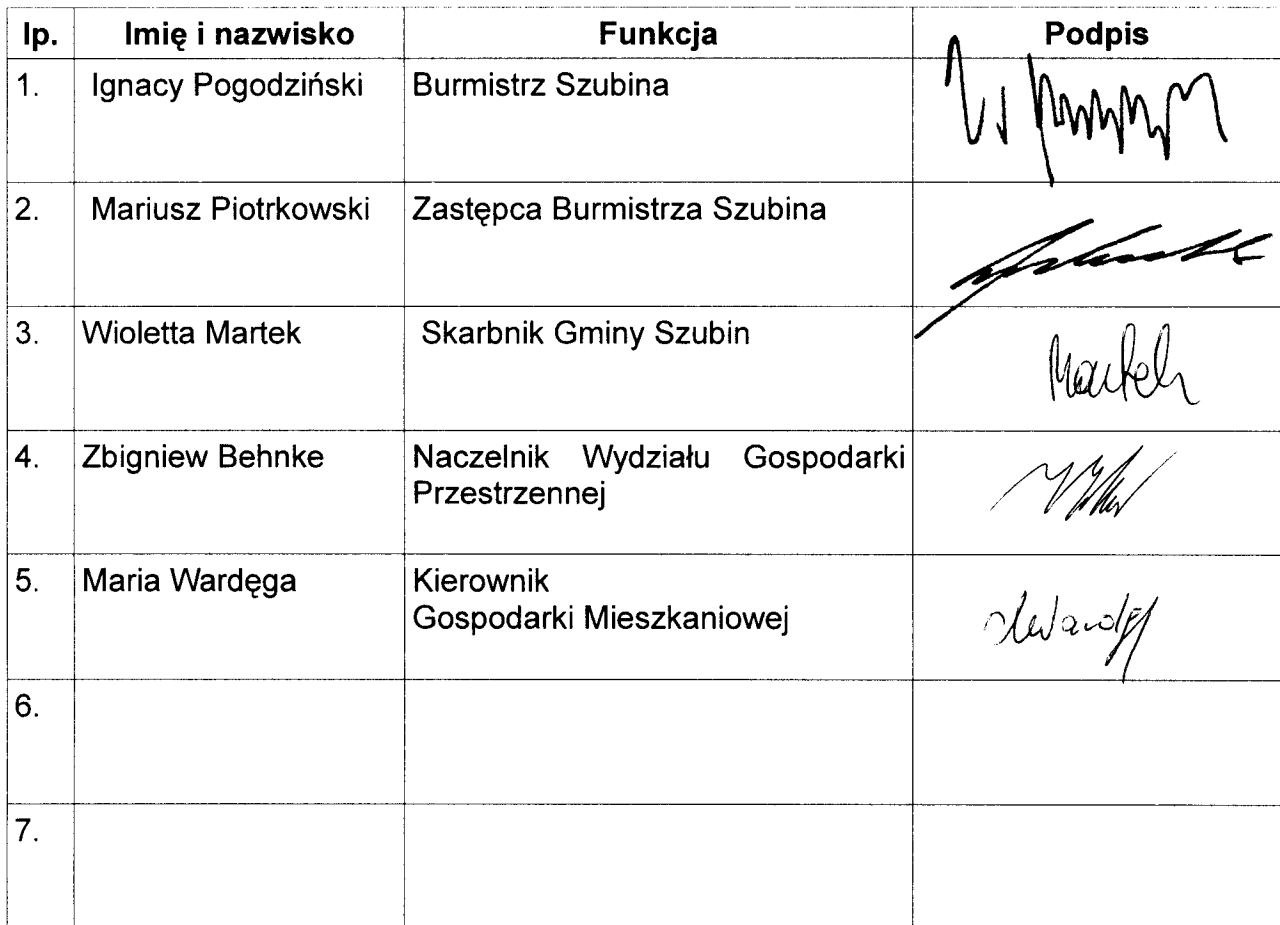 lp. Imię i nazwisko Funkcja Podpis
1. Ignacy Pogodziński Burmistrz Szubina
2. Mariusz Piotrkowski Zastępca Burmistrza Szubina
3. Wioletta Martek Skarbnik Gminy Szubin Martek
4. Zbigniew Behnke Naczelnik Wydziału Gospodarki
Przestrzennej
5. Maria Wardęga Kierownik
Gospodarki Mieszkaniowej
6.
7.